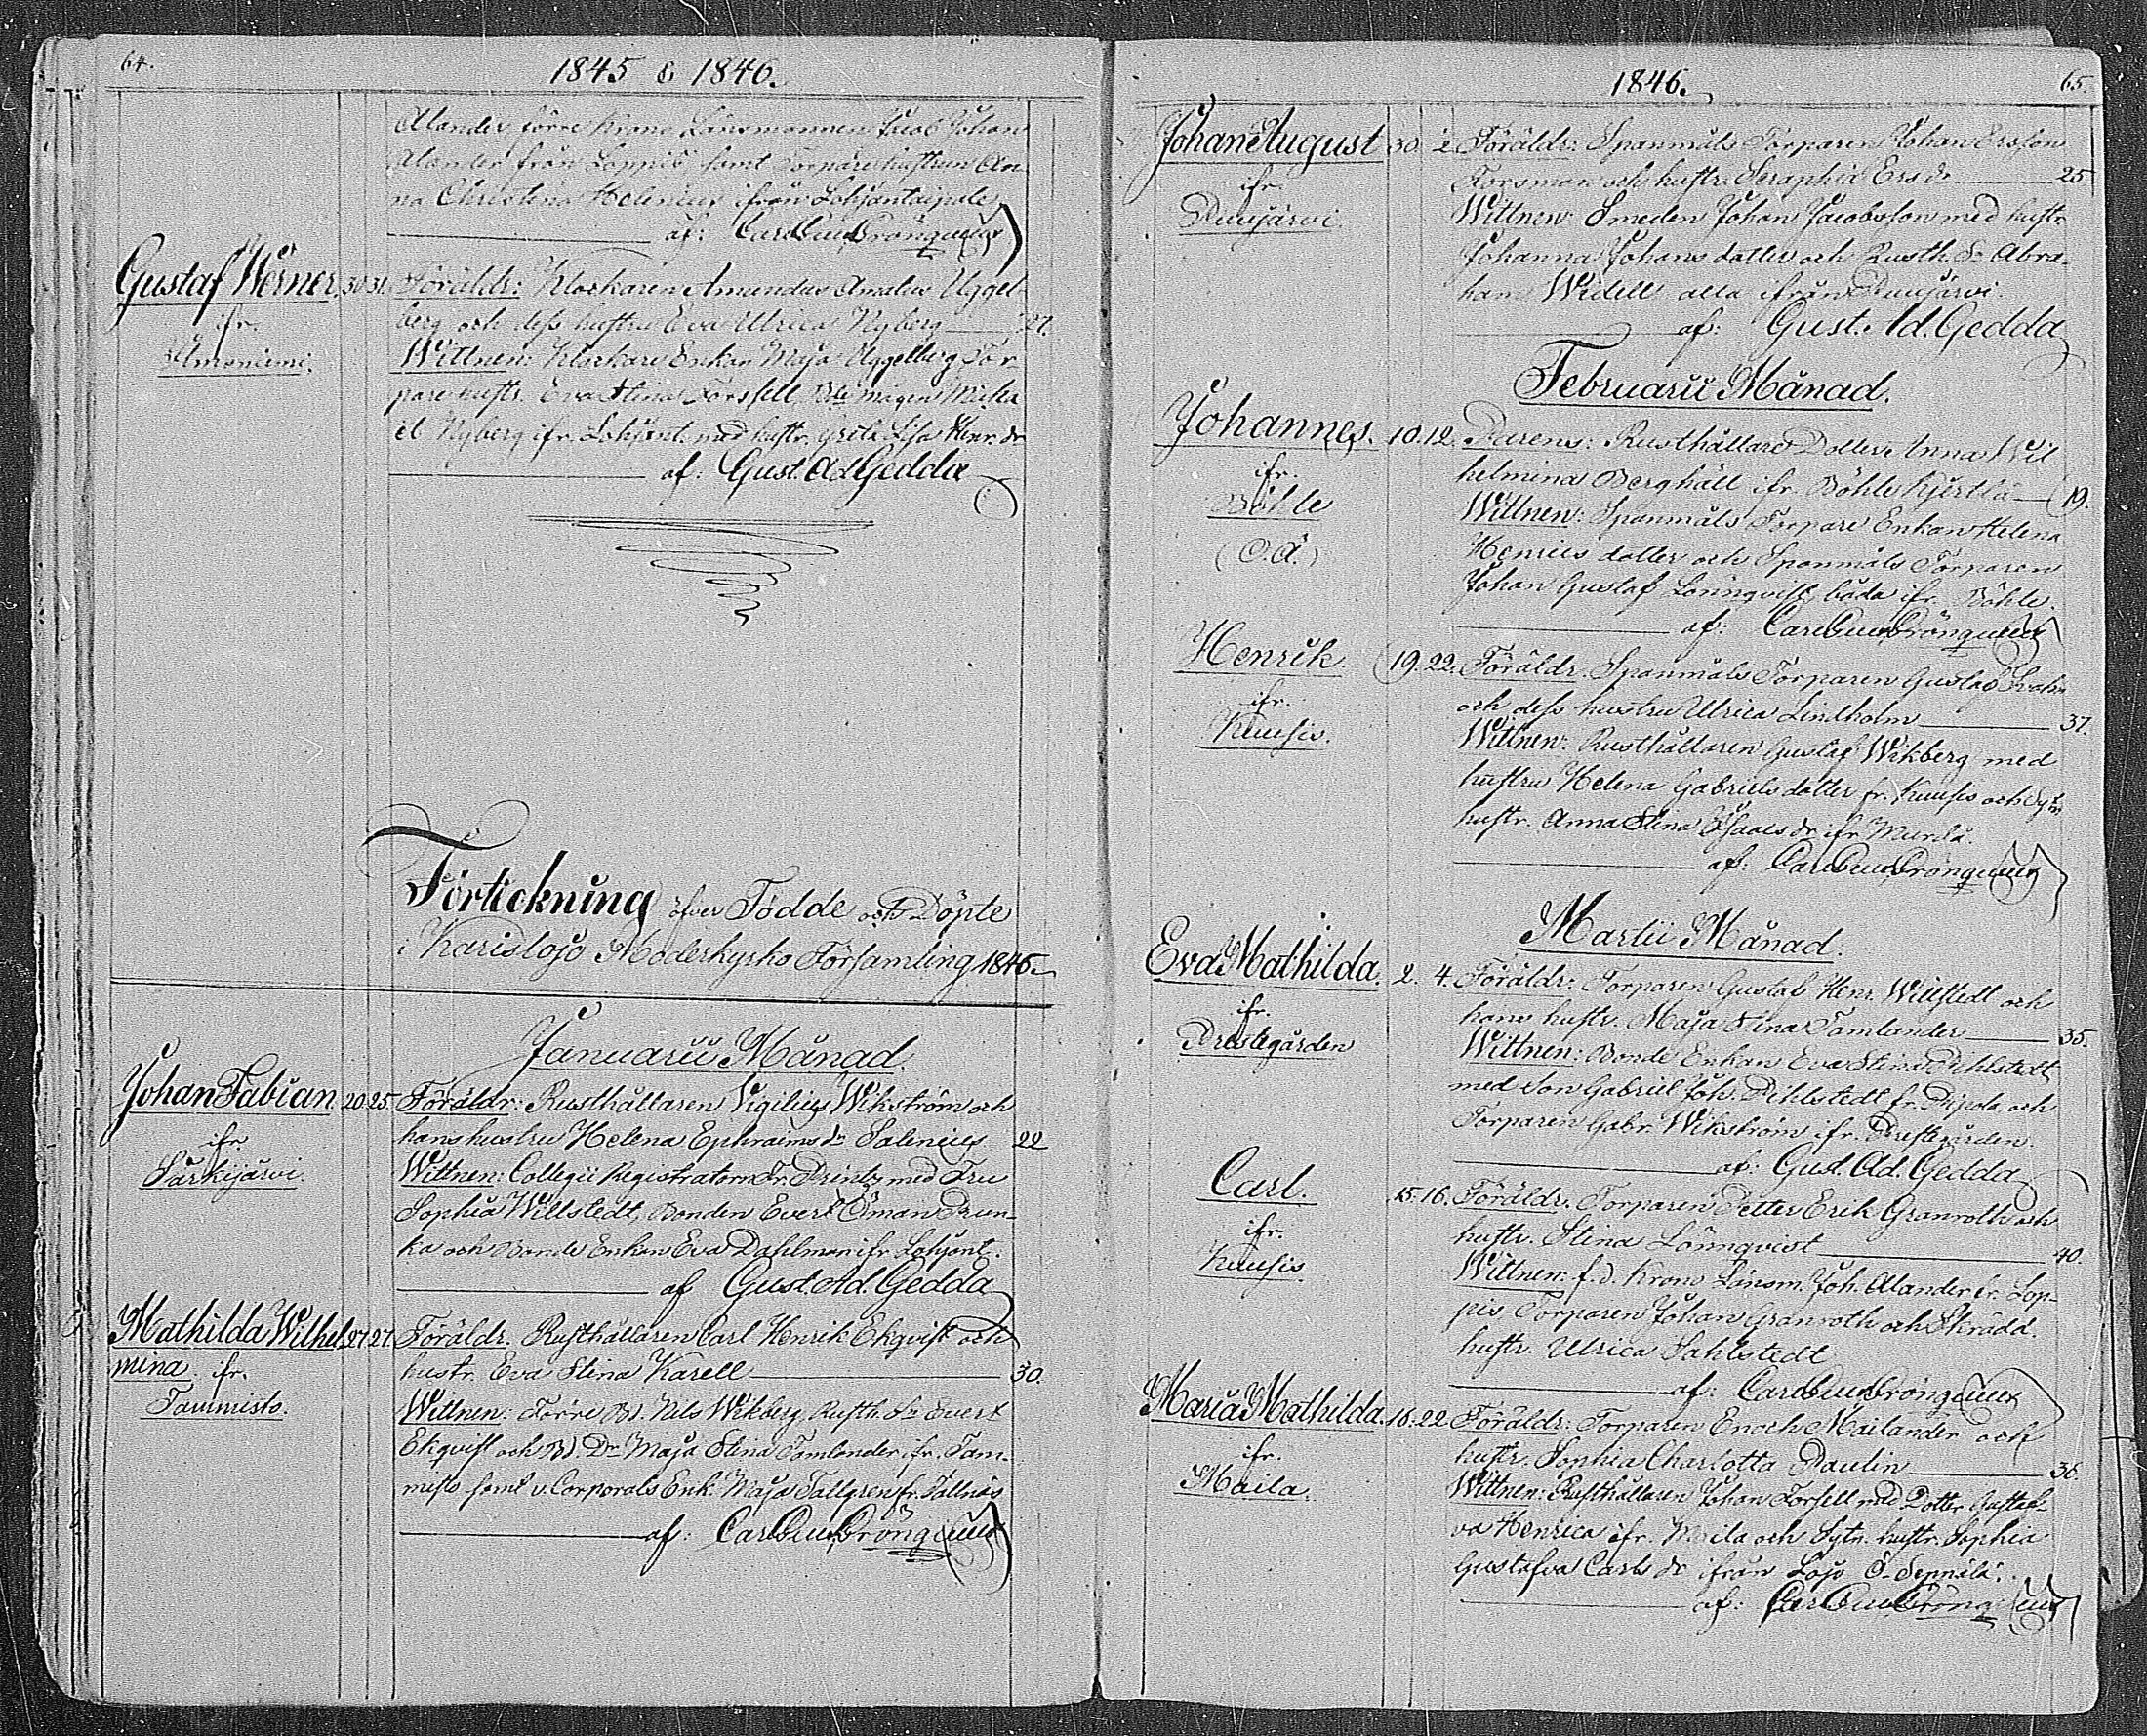 64.
1845 & 1846.
Alander, förre Krono Länsmannen Jacob Johan
Alander från Loppis samt Torpare hustrun An-
na Christina Helenius ifrån Lohjantaipale
af: Carl Gus
Gustaf Werner. 30 31. Föräldr: Klockaren Amandus Amatus Uggel
ifr. berg och dess hustru Eva Ulrica Nyberg 27.
Wittnen: Klockare Enkan Maja Uggelberg, Tor-
pare hustr. Eva Stina Forssell, Michа
el Nyberg ifr. Lohjant. med hustr. Greta Lisa Henr. dr
af: Gust. Ad. Gedda
Förteckning öfver Födde och Döpte
i Karislojo Moderkyrko Församling 1846.
Januarii Månad.
Johan Fabian. 20 25. Föräldr: Rusthållaren Vigilius Wikström och
ifr. hans hustru Helena Ephraims dr Salenius 22
Särkijärvi. Wittnen: Collegii Registratorn Fr. Printz med Fru
Sophia Willstedt, Bonden Evert Öman Prun-
ka och Bonde Enkan Eva Dahlman ifr. Lohjant.
af Gust. Ad. Gedda
Mathilda Wilhel 27. 27. Föräldr. Rusthållaren Carl Henrik Ekqvist och
mina. ifr. hustr. Eva Stina Karell 30.
Tammisto. Wittnen: Förre Bd. Nils Wikberg, Rusth. Sn Evert
Ekqvist och Bd. Dr Maja Stina Tamlander ifr. Tam-
misto samt v. Corporals Enk. Maja Tallgren fr. Tallnäs
af: Carl Gus
1846.
65.
Johan August 30. 2. Föräldr: Spanmåls Torparen Johan Ersson
ifr. Forsman och hustr. Seraphia Ers dr 25
Puujärvi. Wittnen: Smeden Johan Jacobsson med hustr.
Johanna Johans dotter och Rusth. Sn Abra-
ham Widell alla ifrån Puujärvi.
af: Gust. Ad. Gedda
Februarii Månad.
Johannes. 10. 12. Parens: Rusthållare Dotter Anna Wil
ifr. helmina Berghäll ifr. Böhle Kjertlä 19.
Böhle Wittnen: Spanmåls Torpare Enkan Helena
(O.Ä.) Henrics dotter och Spanmåls Torparen
Johan Gustaf Lönnqvist, båda ifr. Böhle.
af: Carl Gus
Henrik. 19. 22. Föräldr. Spanmåls Torparen Gustaf
ifr. och dess hustru Ulrica Lindholm 37.
Kuusis. Wittnen: Rusthållaren Gustaf Wikberg med
hustru Helena Gabriels dotter fr. Kuusis och Sytn
hustr. Anna Stina Isaacs dr ifr.
af: Carl Gus
Martii Månad.
Eva Mathilda. 2. 4. Föräldr: Torparen Gustaf Henr. Willstedt och
ifr. hans hustr. Maja Stina Tamlander 35.
Prestegården Wittnen: Bonde Enkan Eva Stina Pihlstedt
med Son Gabriel Joh. Pihlstedt fr. Pipola och
Torparen Gabr. Wikström ifr. Prestegården.
af: Gust. Ad. Gedda
Carl. 15. 16. Föräldr. Torparen Petter Erik Granroth och
ifr. hustr. Stina Lönnqvist 40.
Kuusis. Wittnen: f.d. Krono Länsm. Joh. Alander fr. Lop-
pis, Torparen Johan Granroth och Skrädd.
hustr. Ulrica Sahlstedt
af: Carl Gus
Maria Mathilda. 16. 22. Föräldr: Torparen Enoch Mailander och
ifr. hustr. Sophia Charlotta Paulin 36.
Maila. Wittnen: Rusthållaren Johan Forsell med Dotter Gustaf-
va Henrica ifr. Maila och Sytn. hustr. Sophia
Gustafva Carls dr ifrån Lojo Ö-Seppälä.
af: Carl Gus